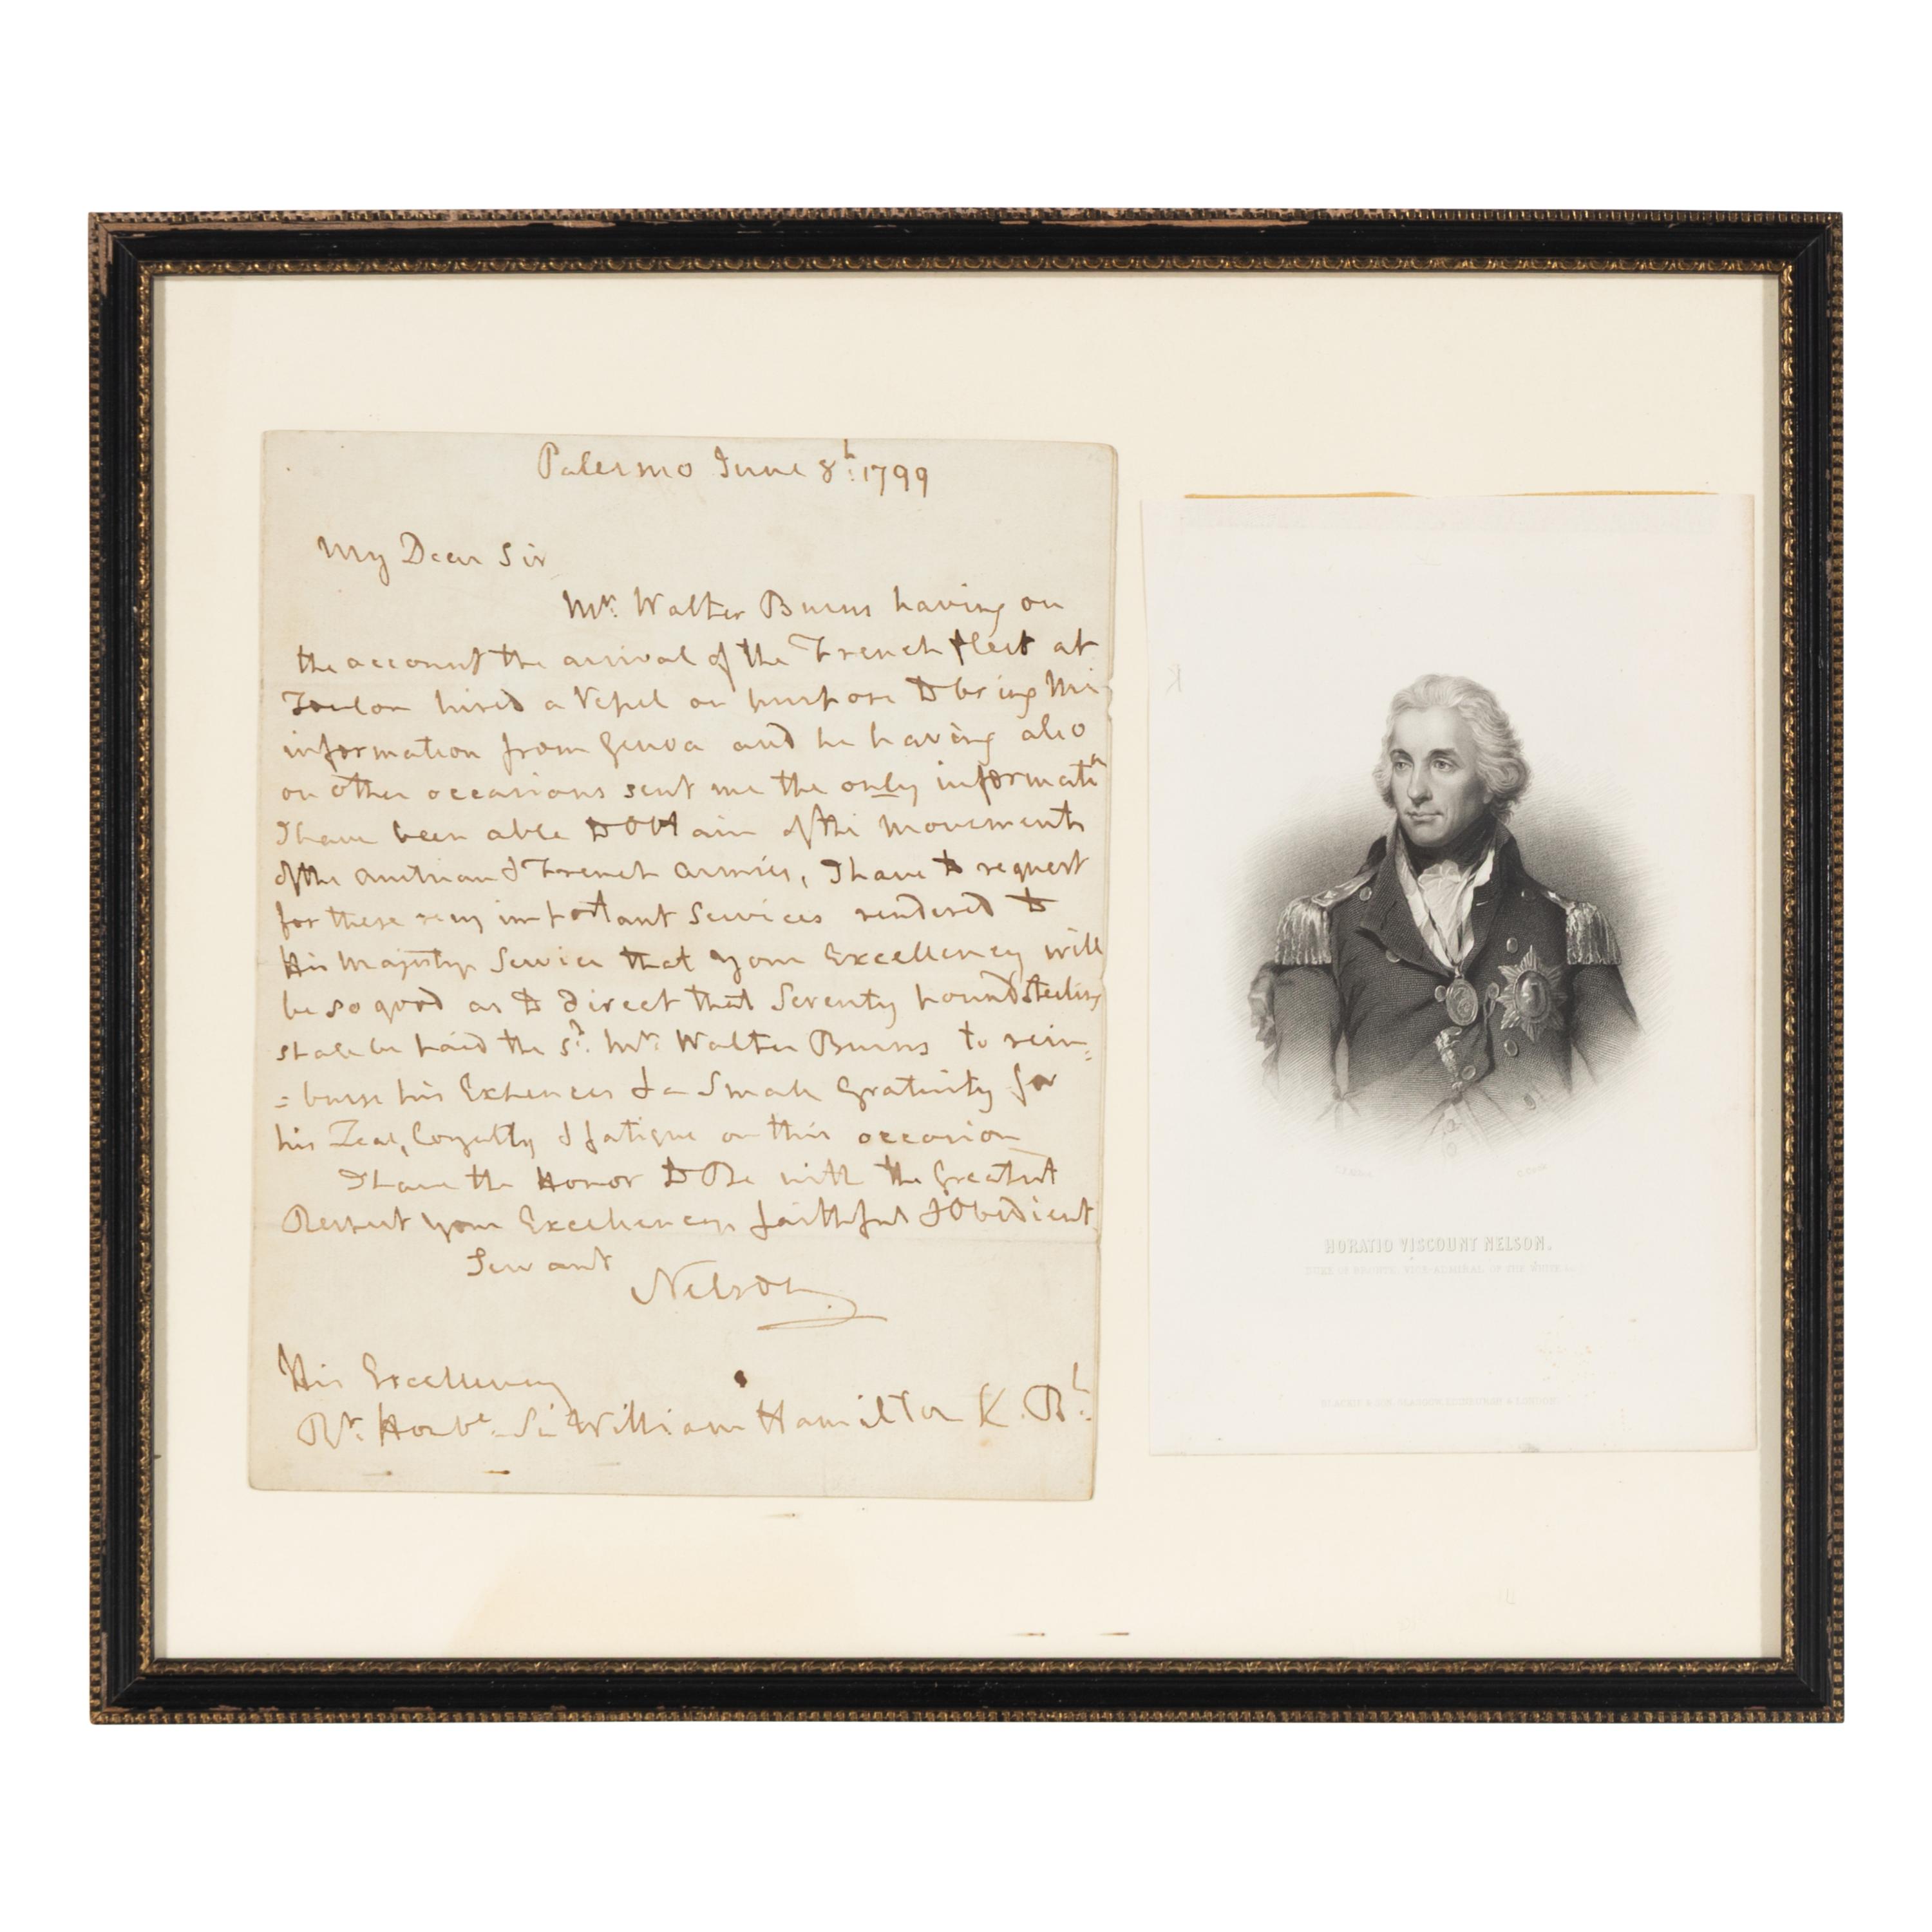 Palermo June 8h: 1799
My Dear Sir
Mr: Walter Burns having on
the account the arrival of the French fleet at
Toulon hired a Vessel on purpose to bring Me
information from Genoa and he having also
on other occasions sent me the only informatn
I have been able to obtain of the movements
of the Austrian & French Armies, I have to request
for these very important Services rendered to
His Majestys Service that your Excellency will
be so good as to direct that Seventy pounds sterling
shall be paid the sd: Mr: Walter Burns to reim=
=burse his Expences & a Small Gratuity for
his Zeal, Loyalty & fatigue on this occasion
I have the Honor to Be with the Greatest
Respect your Excellencys faithful & Obedient
Servant
Nelson
His Excellency
Rt: Honble. Sir William Hamilton K. Bh:
HORATIO VISCOUNT NELSON.
DUKE OF BRONTE, VICE-ADMIRAL OF THE WHITE &c.
BLACKIE & SON, GLASGOW, EDINBURGH & LONDON.